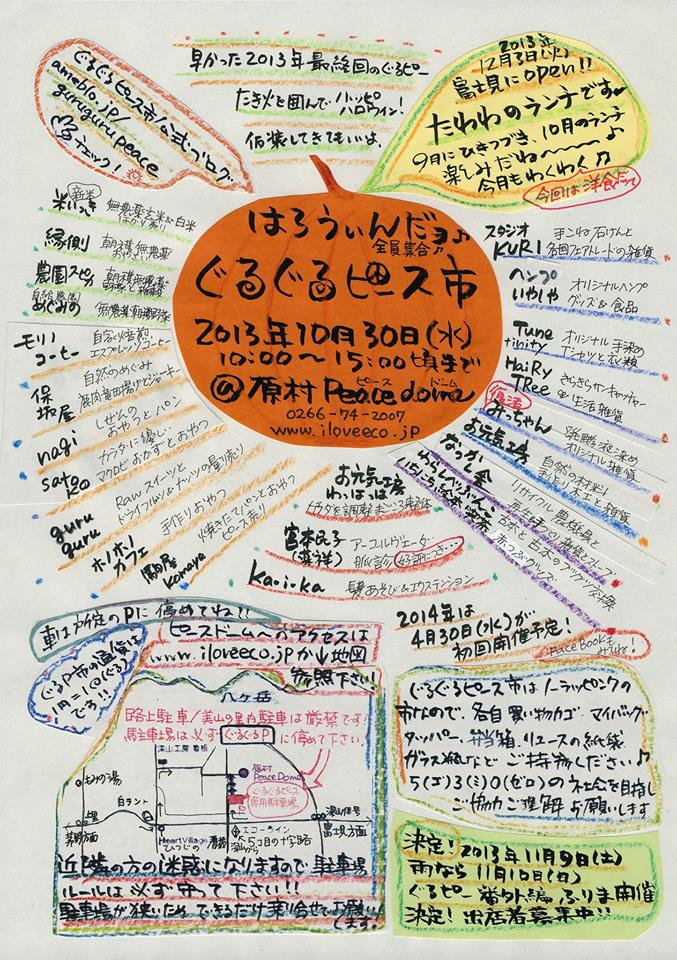 早かった2013年最終回のぐるピー
たき火を囲んでハッピーハロウィン!
仮装してきてもいいよ、
ぐるぐるピース市公式ブログ
ameblo.jp/
guruguru peace
チェック!
2013年
12月3日(火)
富士見にopen!!
たわわのランチです
9月にひきつづき、10月のランチ
楽しみだね〜♪
今月もわくわく♫
今回は洋食だって
はろうぃんだョ♪
全員集合♪
ぐるぐるピース市
2013年10月30日(水)
10:00〜15:00頃まで
@原村 Peace dome
ピース ドーム
0266-74-2007
www.iloveeco.jp
新米
無農薬玄米&白米
はかり売り
縁側
朝採無農薬
農園スピカ
朝採無農薬
自給農園
めぐみの
無農薬朝採野菜
モリノコーヒー
自家焙煎
エスプレッソコーヒー
保坂屋
自然のめぐみ
鹿肉竜田揚げとジャーキー
nagi
しぜんの
おやつとパン
カラダに優しい
マクロビおかずとおやつ
guru guru
Rawスイーツと
ドライフルーツ&ナッツの量り売り
ホノホノカフェ
手作りおやつ
Komaya
焼きたてパンとおやつ
ピース売り
スタジオKURI
手こねる石けんと
各国フェアトレードの雑貨
ヘンプいやしや
オリジナルヘンプ
グッズ&食品
Tune tivity
オリジナル手染め
Tシャツと衣類
HaiRy TRee
きらきらサンキャッチャー
&生活雑貨
復活
みっちゃん
オリジナル雑貨
お元気工房
自然の材料
手作り木工と雑貨
なつかし舎
お元気工房
わっはっは
カラダを調整まごころ整体
宮本民子
(薬祥)
アーユルヴェーダ
脈診
好評につき…
ka-i-ka
髪あそび&エクステンション
車は必ず指定のPに停めてね!!
ぐるP市の通貨は
1円=1◎(ぐる)
です!!
ピースドームへのアクセスは
www.iloveeco.jpか↓地図
参照下さい
八ヶ岳
路上駐車/美山の里内駐車は厳禁です!
駐車場は必ずぐるぐるPに停めて下さい。
深山工房 看板
もみの湯
原村
Peace Dome
ぐるぐるピース
専用駐車場
自ラント
茅野方面
Heart Village
つつじの
看板
エコーライン
5コ目の十字路
深山から
深山信号
富士見方面
近隣の方の迷惑になりますので駐車場
ルールは必ず守って下さい!!
駐車場が狭いため、できるだけ乗り合せてお願いします。
2014年は
4月30日(水)が
初回開催予定!
FaceBookも
みてね!
ぐるぐるピース市はノーラッピングの
市なので、各自買い物カゴ、マイバッグ
タッパー、弁当箱、リユースの紙袋、
ガラス瓶などご持参ください♪
5(ゴ)3(ミ)0(ゼロ)の社会を目指し
ご協力ご理解お願いします
決定!2013年11月9日(土)
雨なら11月10日(日)
ぐるピー番外編ふりま開催
決定!出店者募集中!!